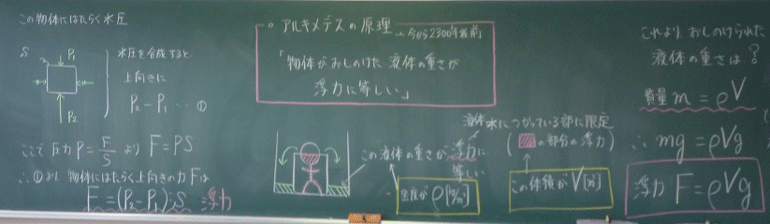 この物体にはたらく水圧
S
P₁
P₂
水圧を合成すると
上向きに
P₂－P₁ … ①
ここで 圧力 P = F/S より F = PS
∴ ①より 物体にはたらく上向きの力 F は
F = (P₂－P₁)S 浮力
○ アルキメデスの原理 … 今から2300年前
「物体がおしのけた 液体の重さが
浮力に等しい」
この液体の重さが浮力に
等しい
密度が ρ[kg/m³]
液体
水につかっている部に限定
( の部分の浮力)
この体積が V[m³]
これより、おしのけられた
液体の重さは？
質量 m = ρV
∴ mg = ρVg
浮力 F = ρVg